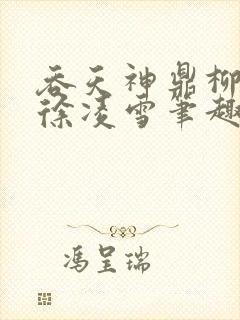 吞天神鼎柳
徐凌雪笔趣
冯呈瑞